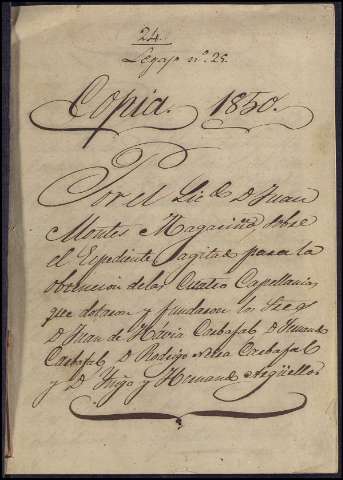 24.
Legajo nº. 25.
Copia. 1850.
Por el Licdo D Juan
Montes Magariño sobre
el Expediente agitado para la
obtencion de las Cuatro Capellanias
que dotaron y fundaron los Sres
D Juan de Carbafal D
Carbafal D Rodrigo Carbafal
y D Yñigo y Hernando Argüello